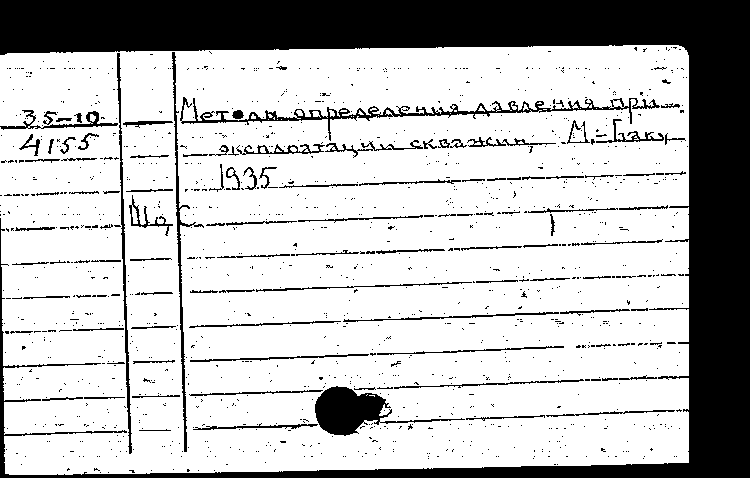 35-10
4155
Методы определения давления при
эксплоатации скважин, М.-Баку,
1935.
Що, С